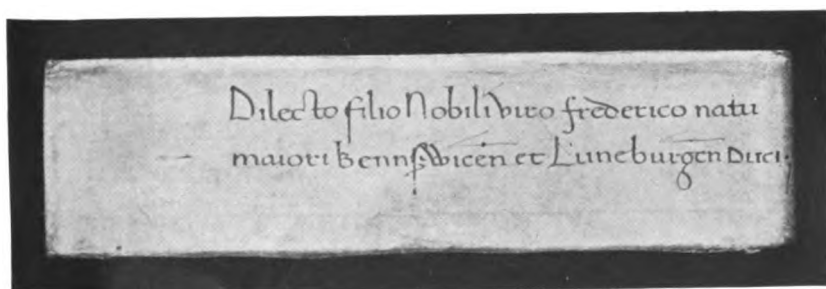 Dilecto filio Nobili viro frederico natu
maiori Bennsvvicen̄ et Luneburgen̄ Duci.